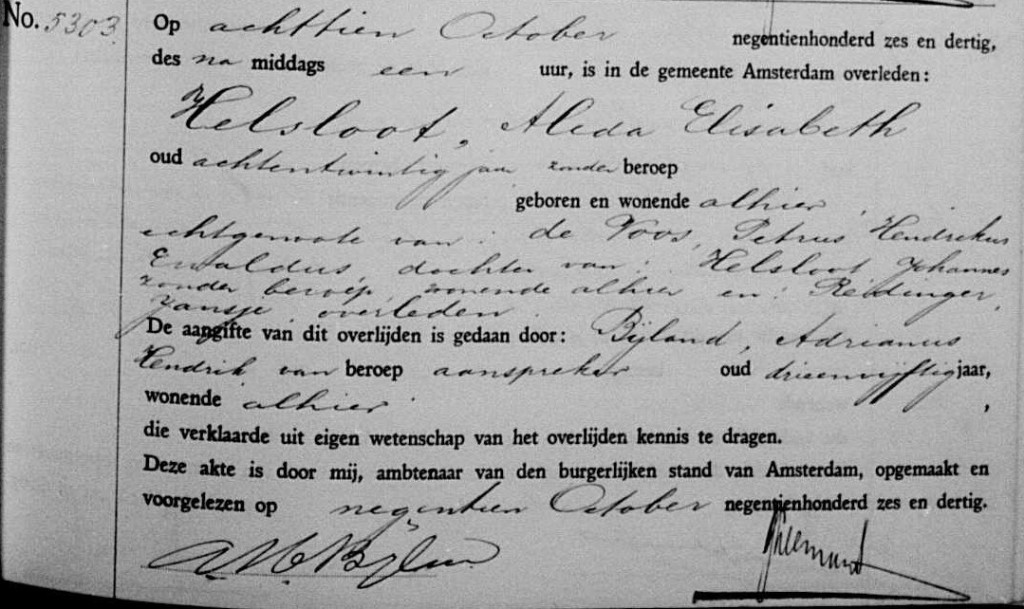 No. 5303.
Op achttien October negentienhonderd zes en dertig,
des na middags een uur, is in de gemeente Amsterdam overleden:
Helsloot, Aleda Elisabeth
oud achtentwintig jaar zonder beroep
geboren en wonende alhier,
echtgenoote van: de Voos, Petrus Hendrekus
Ewaldus, dochter van: Helsloot, Johannes
zonder beroep, wonende alhier en: Reidinger,
Jansje, overleden.
De aangifte van dit overlijden is gedaan door: Bijland, Adrianus
Hendrik van beroep aanspreker oud drieenvijftig jaar,
wonende alhier,
die verklaarde uit eigen wetenschap van het overlijden kennis te dragen.
Deze akte is door mij, ambtenaar van den burgerlijken stand van Amsterdam, opgemaakt en
voorgelezen op negentien October negentienhonderd zes en dertig.